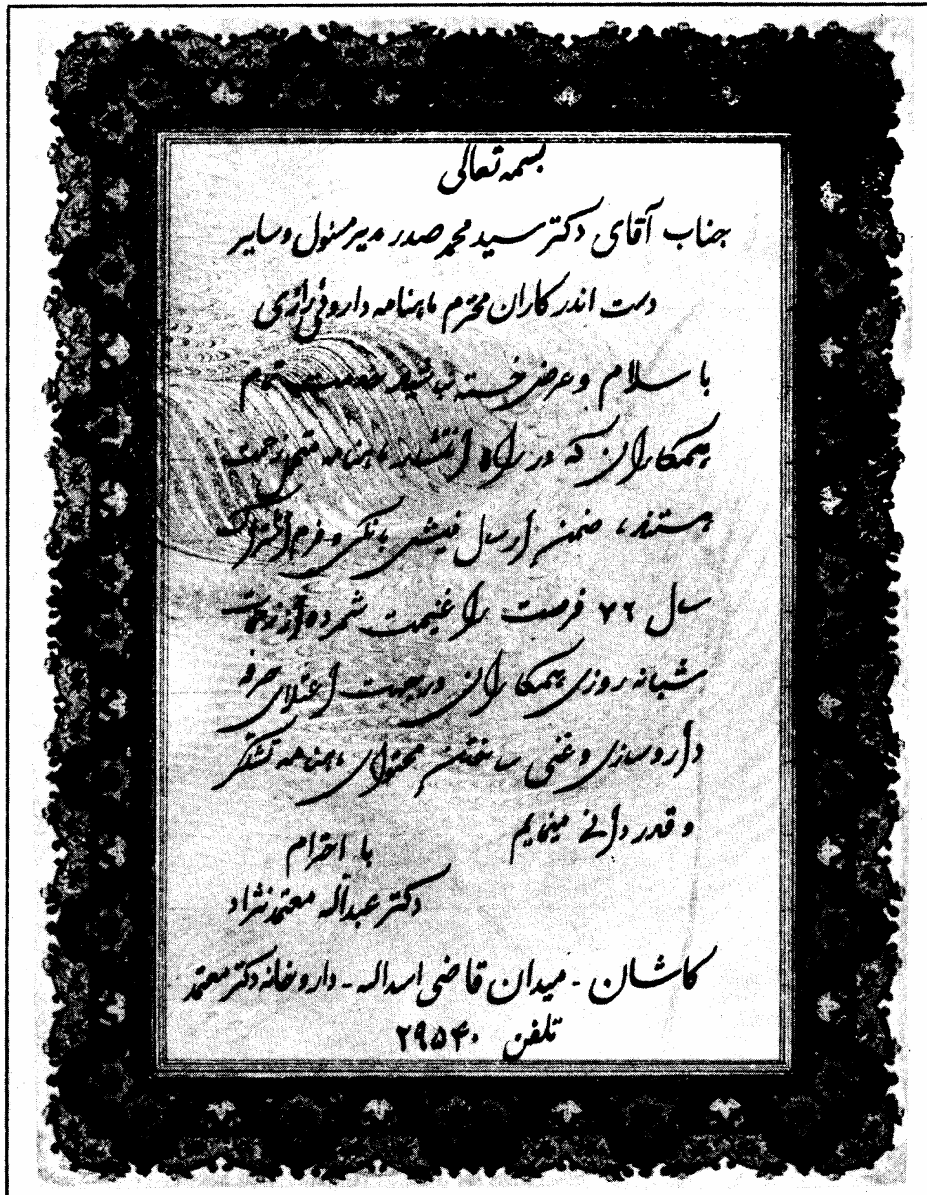 بسمه تعالی
جناب آقای دکتر سید محمد صدر مدیر مسئول و سایر
دست اندرکاران محترم ماهنامه داروئی رازی
با سلام و عرض خسته نباشید خدمت تمام
همکارانی که در راه انتشار ماهنامه متحمل زحمت
هستند، ضمن ارسال فیش بانکی و فرم اشتراک
سال ۷۶ فرصت را غنیمت شمرده از زحمات
شبانه روزی همکاران در جهت اعتلای حرفه
داروسازی و غنی ساختن محتوای ماهنامه تشکر
و قدردانی مینمایم
با احترام
دکتر عبداله معتمدنژاد
کاشان - میدان قاضی اسداله - داروخانه دکتر معتمد
تلفن ۲۹۵۴۰